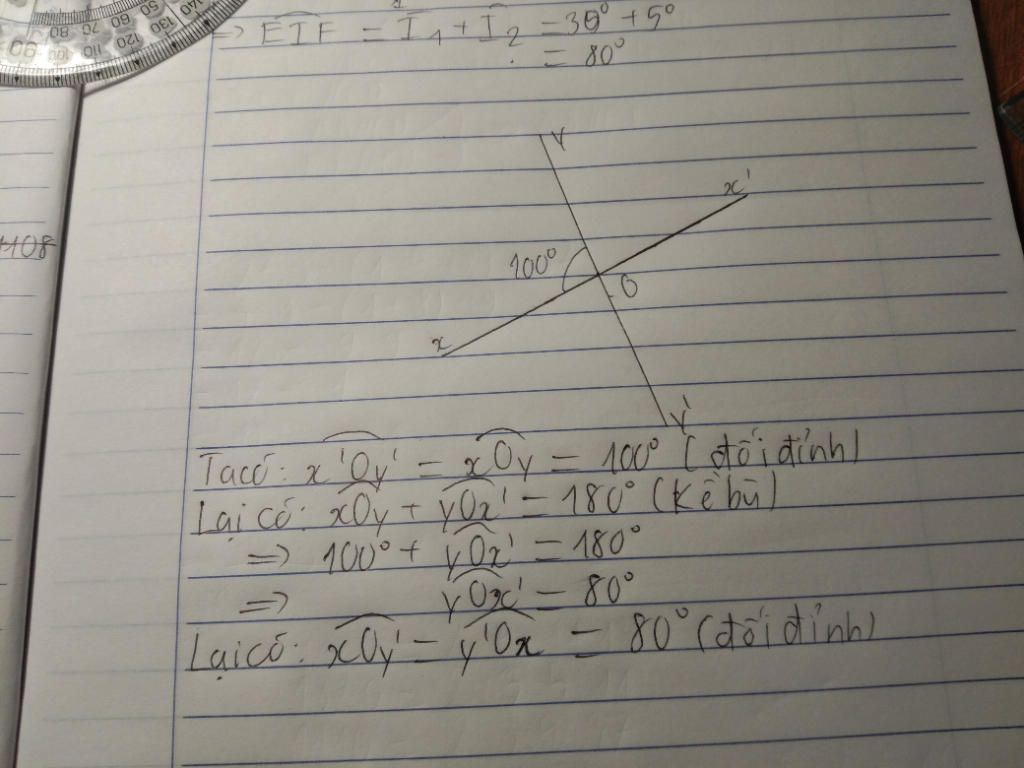 140
130
120
110
100
90
50
60
70
80
90
=> EIF = I₁ + I₂ = 30° + 5°
= 80°
1108
y
x'
100°
O
x
y'
Ta có: x'Oy' = xOy = 100° (đối đỉnh)
Lại có: xOy + yOx' = 180° (Kề bù)
=> 100° + yOx' = 180°
=> yOx' = 80°
Lại có: xOy' = y'Ox = 80° (đối đỉnh)